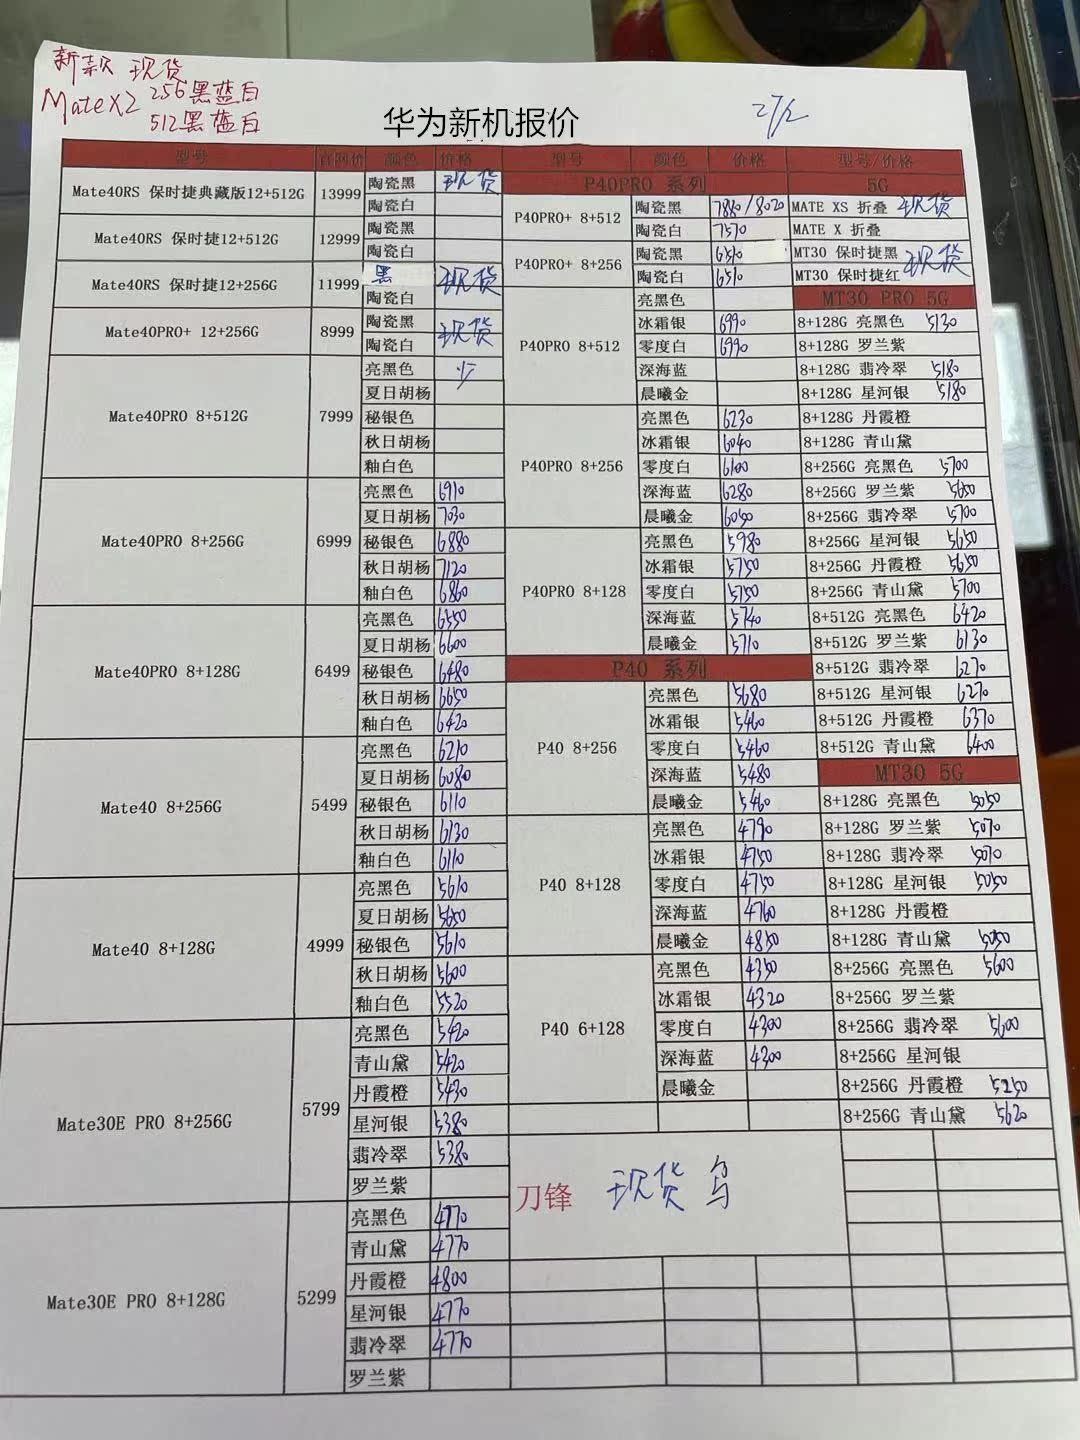 新款 现货
MateX2 256黑蓝白
512黑蓝白
华为新机报价
27/2
型号 官网价 颜色 价格
Mate40RS 保时捷典藏版12+512G 13999 陶瓷黑 现货
陶瓷白
Mate40RS 保时捷12+512G 12999 陶瓷黑
陶瓷白
Mate40RS 保时捷12+256G 11999 黑 现货
陶瓷白
Mate40PRO+ 12+256G 8999 陶瓷黑 现货
陶瓷白
Mate40PRO 8+512G 7999 亮黑色 少
夏日胡杨
秘银色
秋日胡杨
釉白色
Mate40PRO 8+256G 6999 亮黑色 6910
夏日胡杨 7030
秘银色 6880
秋日胡杨 7120
釉白色 6860
Mate40PRO 8+128G 6499 亮黑色 6550
夏日胡杨 6600
秘银色 6480
秋日胡杨 6650
釉白色 6420
Mate40 8+256G 5499 亮黑色 6210
夏日胡杨 6080
秘银色 6110
秋日胡杨 6130
釉白色 6110
Mate40 8+128G 4999 亮黑色 5610
夏日胡杨 5650
秘银色 5610
秋日胡杨 5600
釉白色 5520
Mate30E PRO 8+256G 5799 亮黑色 5420
青山黛 5420
丹霞橙 5430
星河银 5380
翡冷翠 5380
罗兰紫
Mate30E PRO 8+128G 5299 亮黑色 4770
青山黛 4770
丹霞橙 4800
星河银 4770
翡冷翠 4770
罗兰紫
型号 颜色 价格
P40PRO 系列
P40PRO+ 8+512 陶瓷黑 7880/8020
陶瓷白 7570
P40PRO+ 8+256 陶瓷黑 6510
陶瓷白 6510
P40PRO 8+512 亮黑色
冰霜银 6990
零度白 6990
深海蓝
晨曦金
P40PRO 8+256 亮黑色 6230
冰霜银 6040
零度白 6100
深海蓝 6280
晨曦金 6050
P40PRO 8+128 亮黑色 5980
冰霜银 5750
零度白 5750
深海蓝 5740
晨曦金 5710
P40 系列
P40 8+256 亮黑色 5680
冰霜银 5460
零度白 5460
深海蓝 5480
晨曦金 5460
P40 8+128 亮黑色 4790
冰霜银 4750
零度白 4750
深海蓝 4760
晨曦金 4850
P40 6+128 亮黑色 4350
冰霜银 4320
零度白 4300
深海蓝 4300
晨曦金
刀锋 现货
型号/价格
5G
MATE XS 折叠 现货
MATE X 折叠
MT30 保时捷黑 现货
MT30 保时捷红
MT30 PRO 5G
8+128G 亮黑色 5130
8+128G 罗兰紫
8+128G 翡冷翠 5180
8+128G 星河银 5180
8+128G 丹霞橙
8+128G 青山黛
8+256G 亮黑色 5700
8+256G 罗兰紫 5650
8+256G 翡冷翠 5700
8+256G 星河银 5650
8+256G 丹霞橙 5650
8+256G 青山黛 5700
8+512G 亮黑色 6420
8+512G 罗兰紫 6130
8+512G 翡冷翠 6270
8+512G 星河银 6270
8+512G 丹霞橙 6370
8+512G 青山黛 6400
MT30 5G
8+128G 亮黑色 5050
8+128G 罗兰紫 5070
8+128G 翡冷翠 5070
8+128G 星河银 5050
8+128G 丹霞橙
8+128G 青山黛 5050
8+256G 亮黑色 5600
8+256G 罗兰紫
8+256G 翡冷翠 5600
8+256G 星河银
8+256G 丹霞橙 5250
8+256G 青山黛 5620